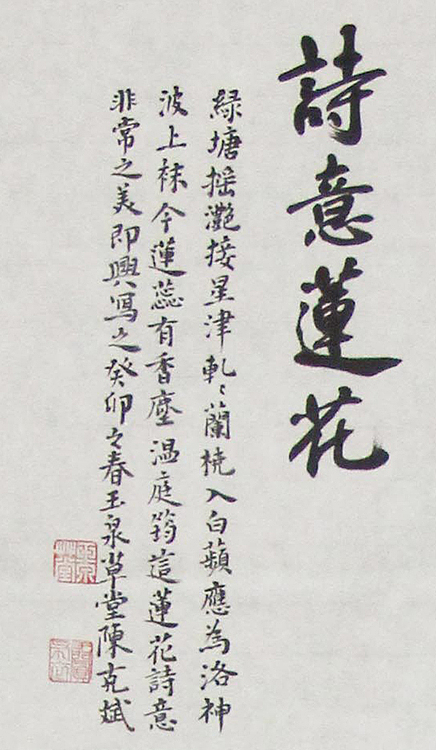 詩意蓮花
綠塘摇灧接星津軋〻蘭橈入白蘋應為洛神
波上袜今蓮蕊有香塵温庭筠這蓮花詩意
非常之美即興寫之癸卯之春玉泉草堂陳克斌